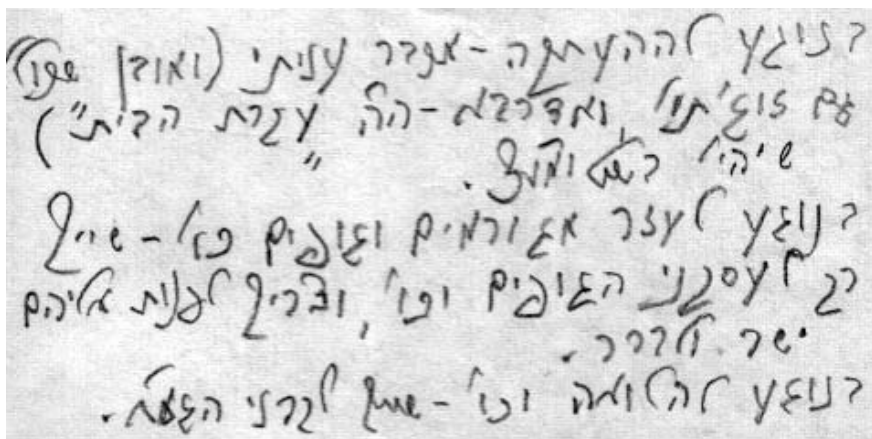 בנוגע להעתקה - מדבר עניתי (ואובן שגם)
גם זוג' תחי', ואדרבא - הרי "עקרת הבית")
שיהי' בשטומ"צ.
בנוגע לעזר מגורמים וגופים כו' - שייך
רק לעסקני הגופים וכו', וצריך לפנות אליהם
ישר ולברר.
בנוגע להלואה וכו' - שייך לברני הגמ"ח.